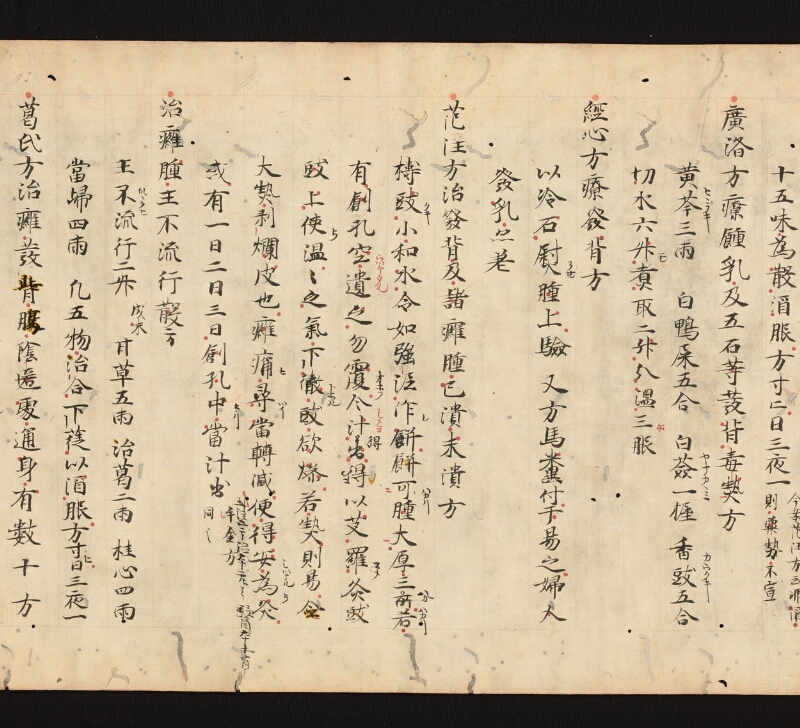 十五味為散酒服方寸匕日三夜一
則藥勢不宣
廣洛方療腫乳及五石等發背毒熱方
黄芩三兩 白鴨屎五合 白蘞一握 香豉五合
切水六升煮取二升分温三服
經心方療發背方
以冷石熨腫上驗 又方馬糞付干易之婦人
發乳亦差
范汪方治發背及諸癰腫已潰未潰方
榑豉小和水令如強泥作餅餅可腫大厚三分若
有創孔空遺之勿覆令汁出得以艾羅灸豉
豉上使温〻之氣下徹豉欲燥若熱則易令
大熱利爛皮也癰痛尋當轉減便得安為灸
或有一日二日三日創孔中當汁出
千金方
同〻
治癰腫王不流行散方
王不流行二升 甘草五兩 治葛二兩 桂心四兩
當歸四兩 凡五物治合下篵以酒服方寸匕日三夜一
葛氏方治癰發背腸陰匿處通身有數十方